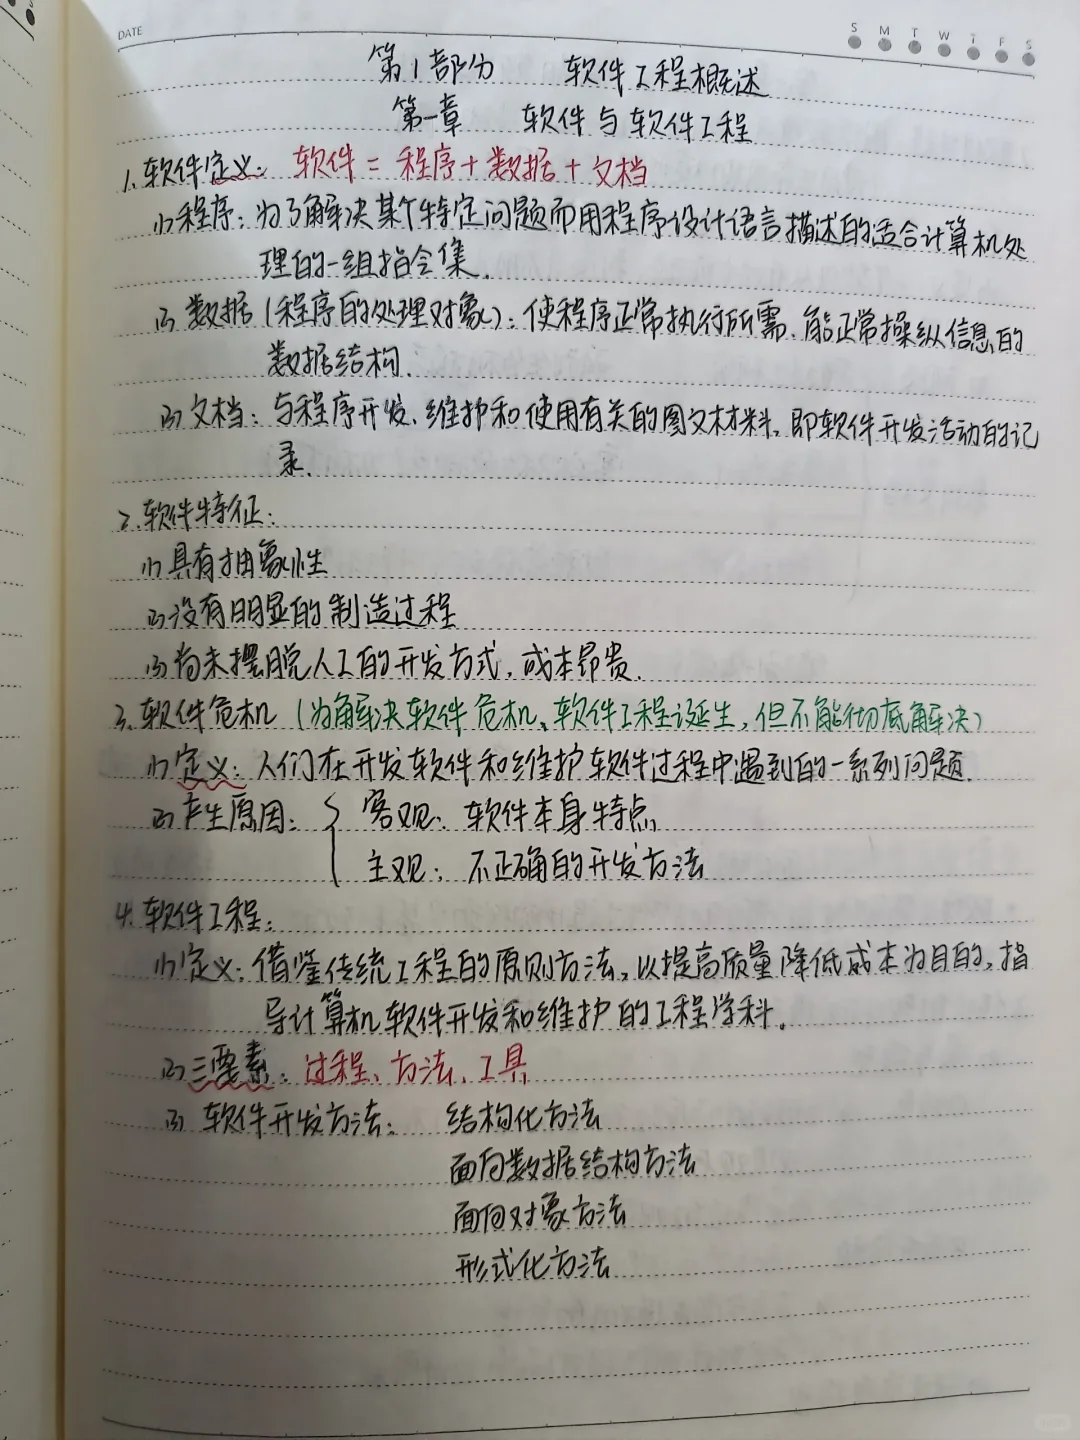 DATE
S M T W T F S
第1部分 软件工程概述
第一章 软件与软件工程
1.软件定义：软件=程序+数据+文档
(1)程序：为了解决某个特定问题而用程序设计语言描述的适合计算机处
理的一组指令集.
(2)数据(程序的处理对象)：使程序正常执行所需、能正常操纵信息的
数据结构.
(3)文档：与程序开发、维护和使用有关的图文材料，即软件开发活动的记
录.
2.软件特征：
(1)具有抽象性
(2)没有明显的制造过程
(3)尚未摆脱人工的开发方式，成本昂贵.
3.软件危机(为解决软件危机、软件工程诞生，但不能彻底解决)
(1)定义：人们在开发软件和维护软件过程中遇到的一系列问题.
(2)产生原因：{ 客观：软件本身特点
主观：不正确的开发方法
4.软件工程：
(1)定义：借鉴传统工程的原则方法，以提高质量降低成本为目的，指
导计算机软件开发和维护的工程学科。
(2)三要素：过程、方法、工具
(3)软件开发方法：结构化方法
面向数据结构方法
面向对象方法
形式化方法